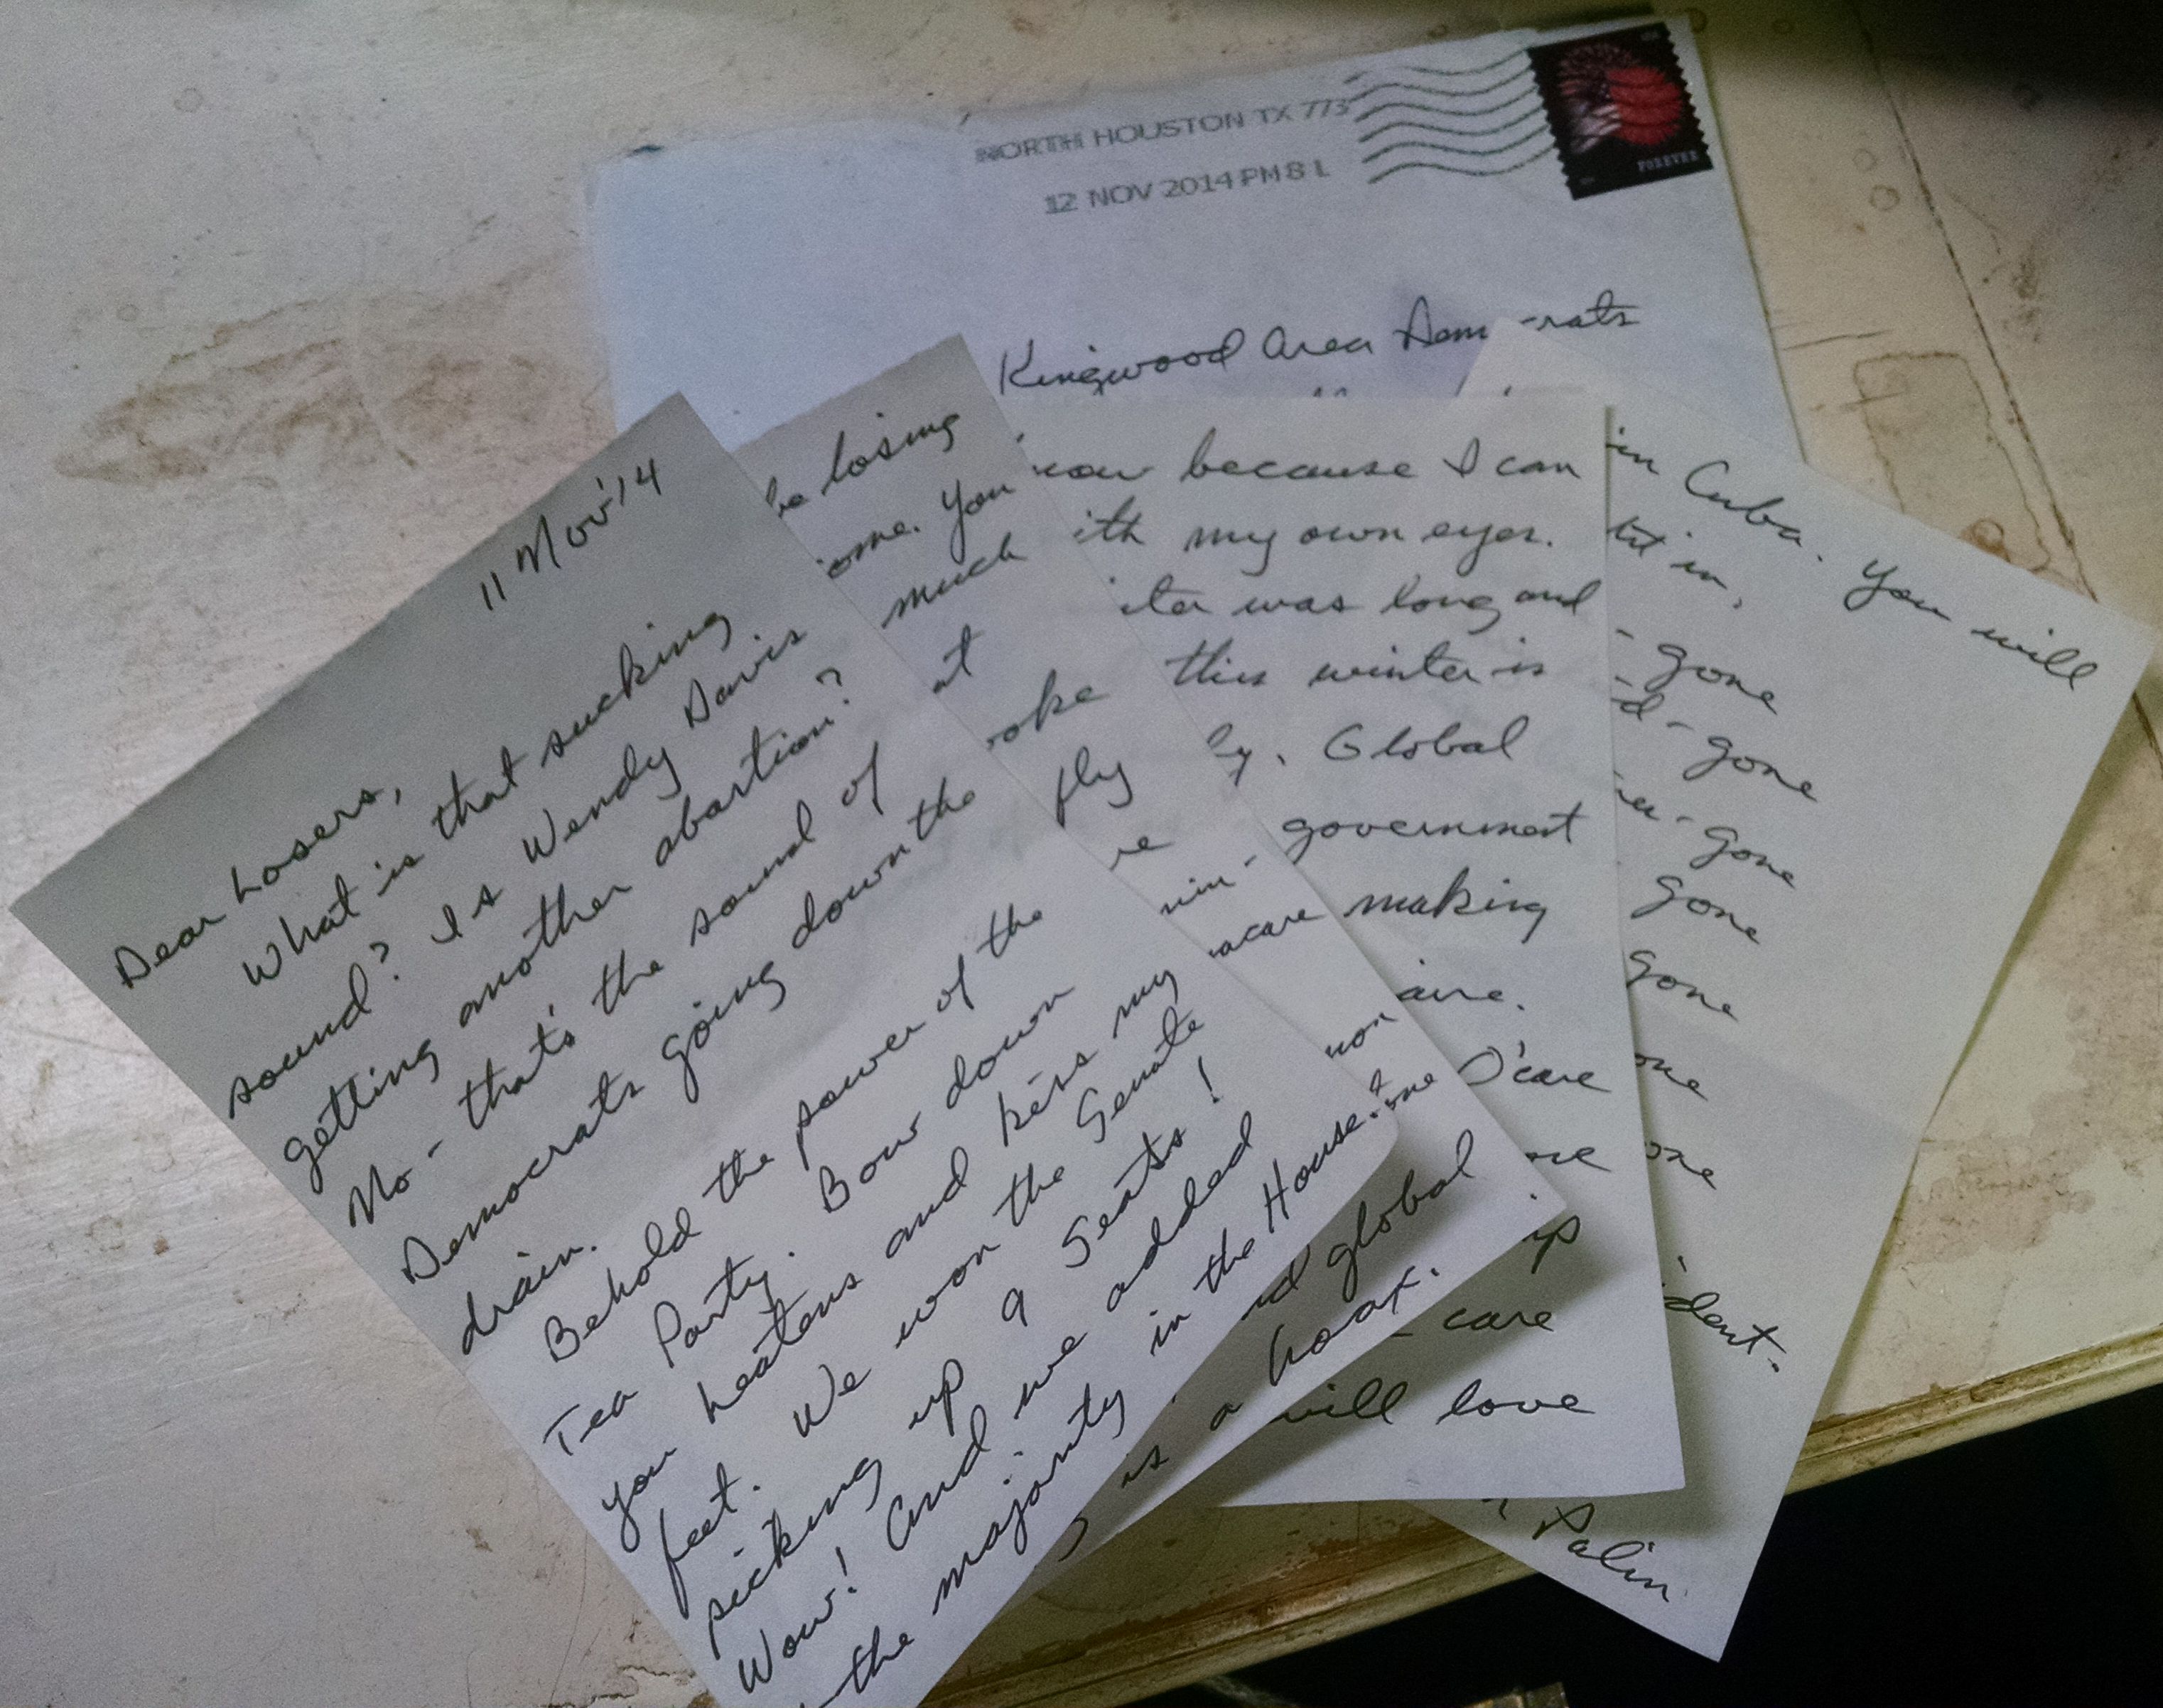 NORTH HOUSTON TX 773
12 NOV 2014 PM 8 L
FOREVER
Kingwood Area Dem -rats
11 Nov '14
Dear Losers,
What is that sucking
sound? Is Wendy Davis
getting another abortion?
No - that's the sound of
Democrats going down the
drain.
Behold the power of the
Tea Party. Bow down
you heatens and kiss my
feet. We won the Senate
picking up 9 Seats!
Wow! And we added
the majority in the House.
losing
ome. You
much
at
oke
fly
re
nin-
acare
non
me
d global
is a hoax.
now because I can
ith my own eyes.
ter was long and
this winter is
ly. Global
government
making
aire.
O'care
ore
up
care
will love
in Cuba. You will
in,
- gone
d - gone
- gone
gone
gone
one
one
ident.
Palin